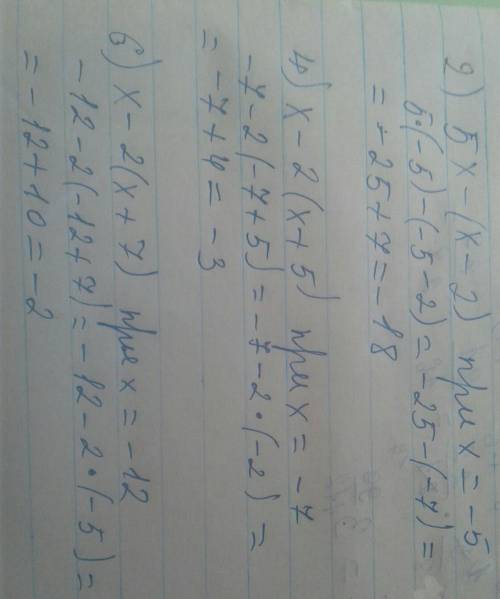 2) 5x - (x - 2) при x = -5
5·(-5) - (-5 - 2) = -25 - (-7) =
= -25 + 7 = -18
4) x - 2(x + 5) при x = -7
-7 - 2(-7 + 5) = -7 - 2·(-2) =
= -7 + 4 = -3
6) x - 2(x + 7) при x = -12
-12 - 2(-12 + 7) = -12 - 2·(-5) =
= -12 + 10 = -2